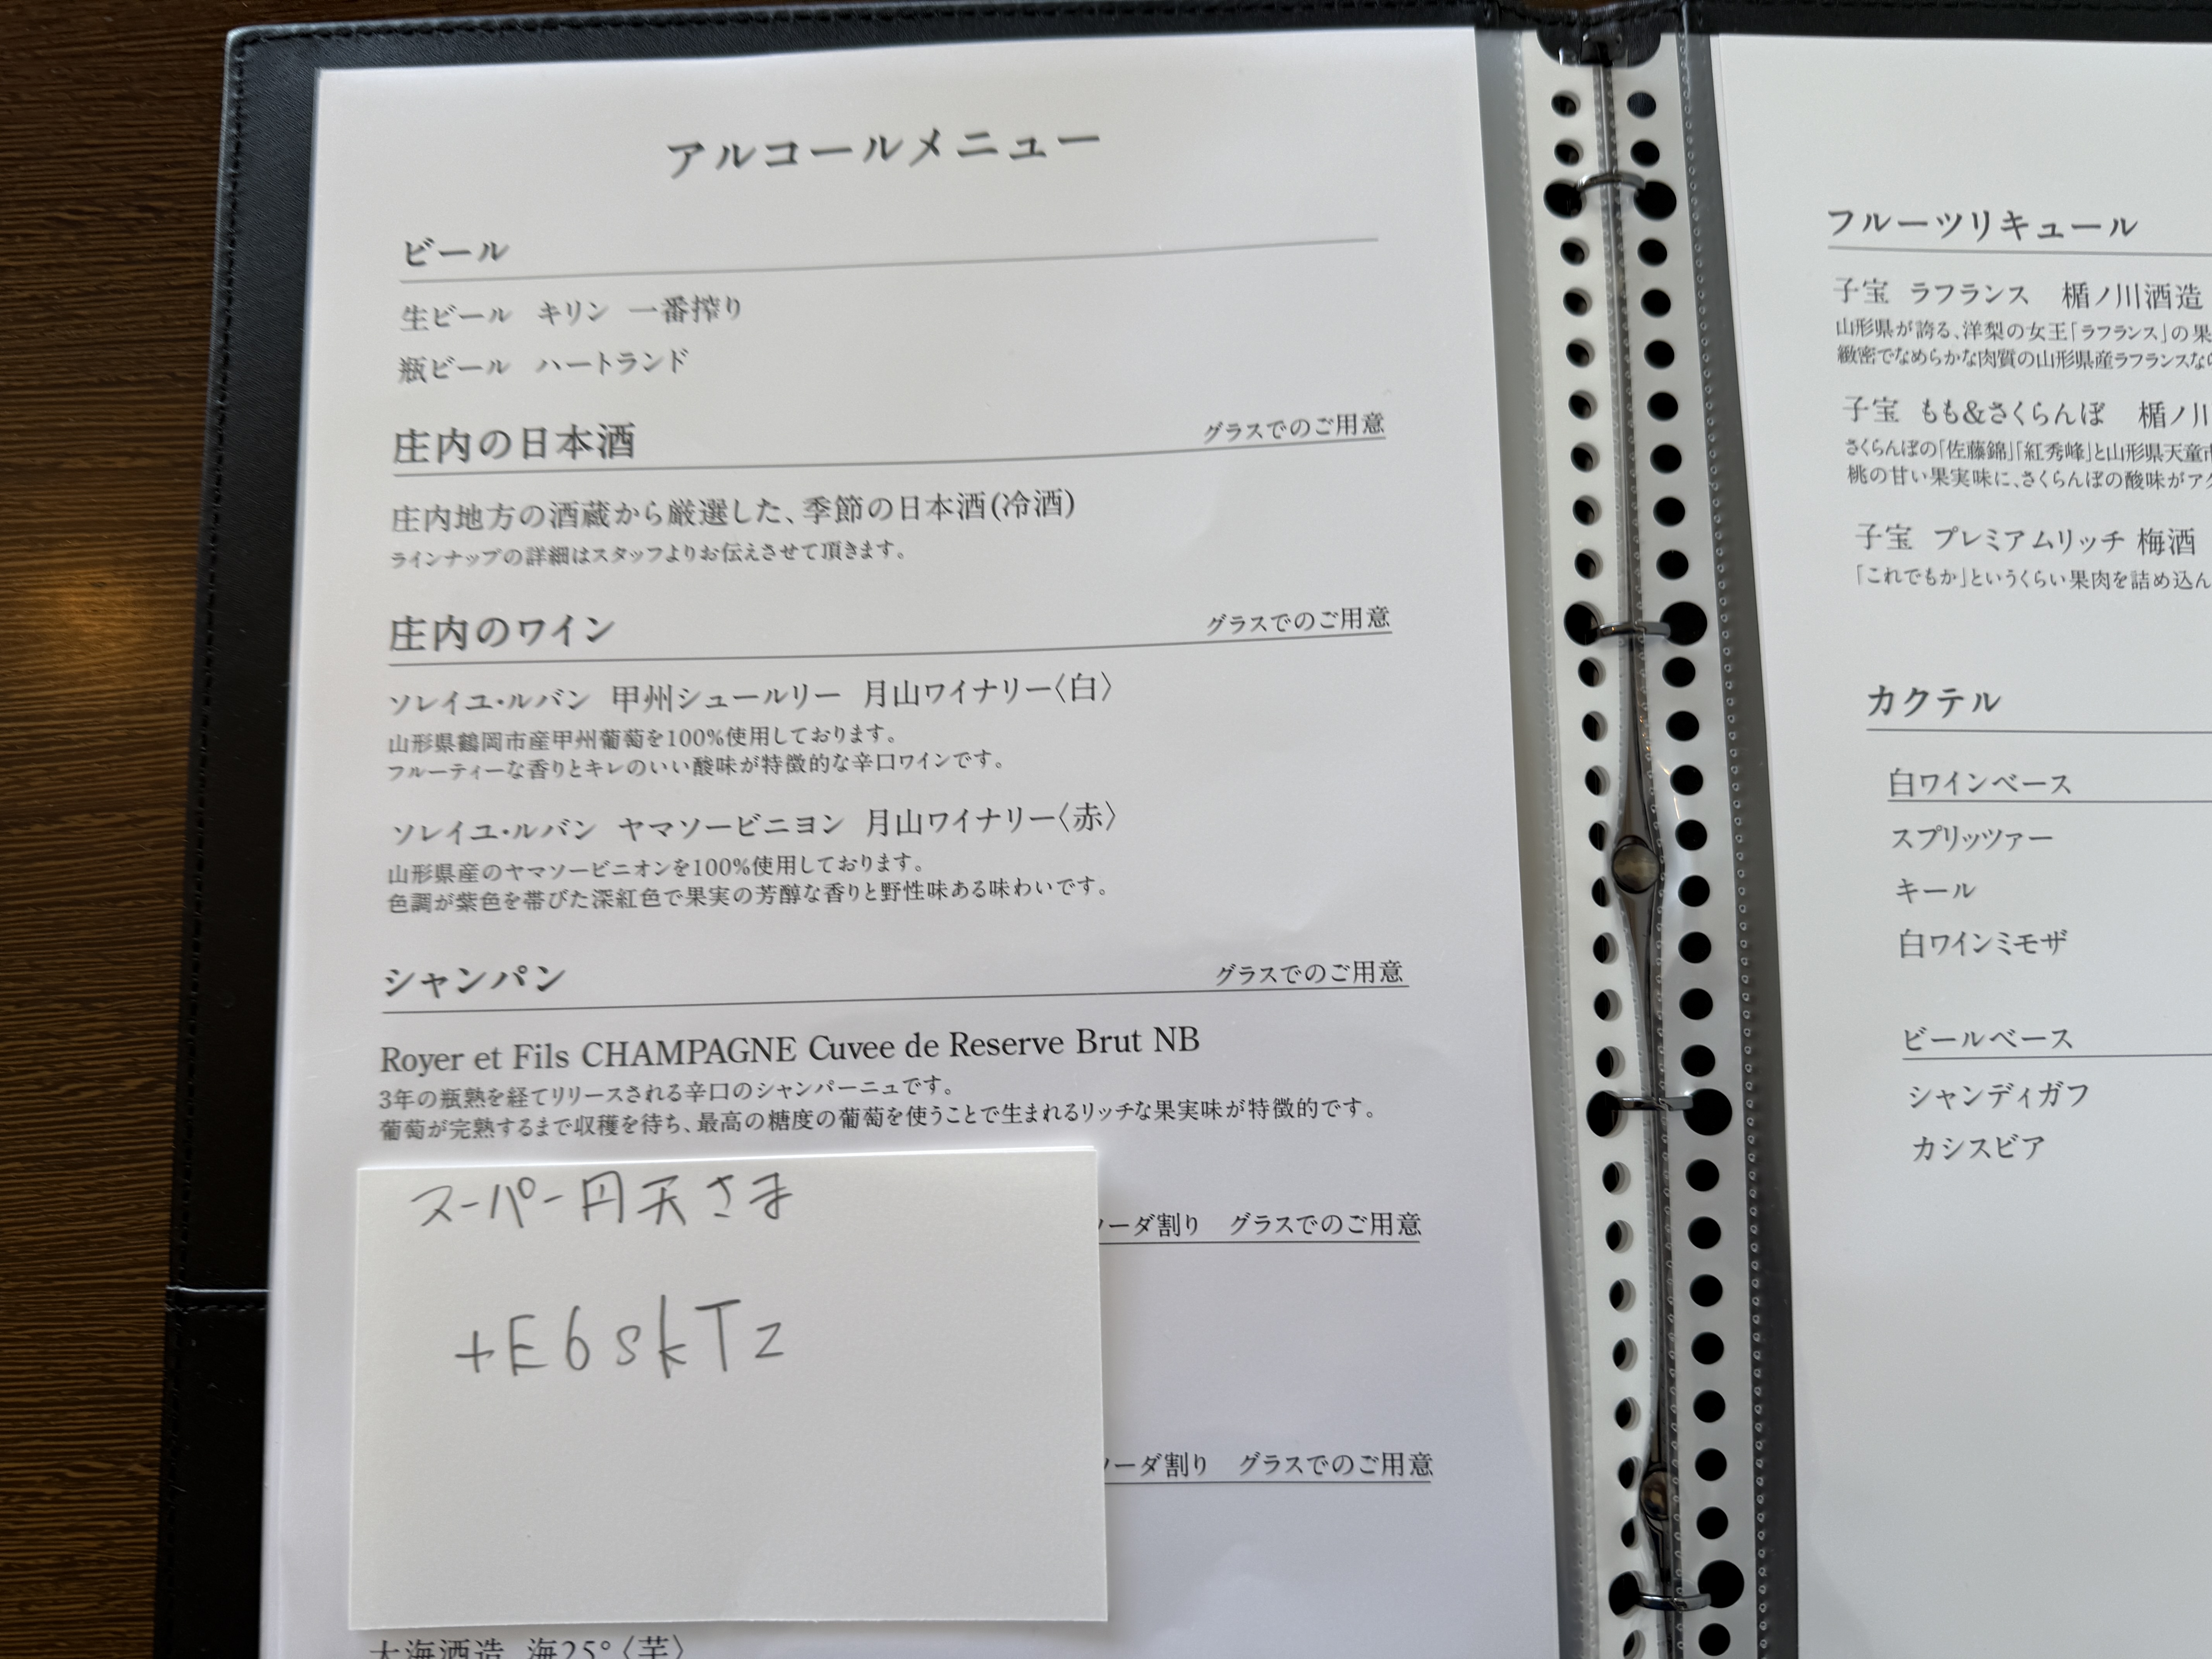 アルコールメニュー
ビール
生ビール キリン 一番搾り
瓶ビール ハートランド
庄内の日本酒 グラスでのご用意
庄内地方の酒蔵から厳選した、季節の日本酒(冷酒)
ラインナップの詳細はスタッフよりお伝えさせて頂きます。
庄内のワイン グラスでのご用意
ソレイユ・ルバン 甲州シュールリー 月山ワイナリー〈白〉
山形県鶴岡市産甲州葡萄を100%使用しております。
フルーティーな香りとキレのいい酸味が特徴的な辛口ワインです。
ソレイユ・ルバン ヤマソービニヨン 月山ワイナリー〈赤〉
山形県産のヤマソービニオンを100%使用しております。
色調が紫色を帯びた深紅色で果実の芳醇な香りと野性味ある味わいです。
シャンパン グラスでのご用意
Royer et Fils CHAMPAGNE Cuvee de Reserve Brut NB
3年の瓶熟を経てリリースされる辛口のシャンパーニュです。
葡萄が完熟するまで収穫を待ち、最高の糖度の葡萄を使うことで生まれるリッチな果実味が特徴的です。
スーパー円天さま
+E6skTz
ソーダ割り グラスでのご用意
ソーダ割り グラスでのご用意
大海酒造 海25°〈芋〉
フルーツリキュール
子宝 ラフランス 楯ノ川酒造
山形県が誇る、洋梨の女王「ラフランス」の果
緻密でなめらかな肉質の山形県産ラフランスな
子宝 もも&さくらんぼ 楯ノ川
さくらんぼの「佐藤錦」「紅秀峰」と山形県天童市
桃の甘い果実味に、さくらんぼの酸味がア
子宝 プレミアムリッチ 梅酒
「これでもか」というくらい果肉を詰め込ん
カクテル
白ワインベース
スプリッツァー
キール
白ワインミモザ
ビールベース
シャンディガフ
カシスビア